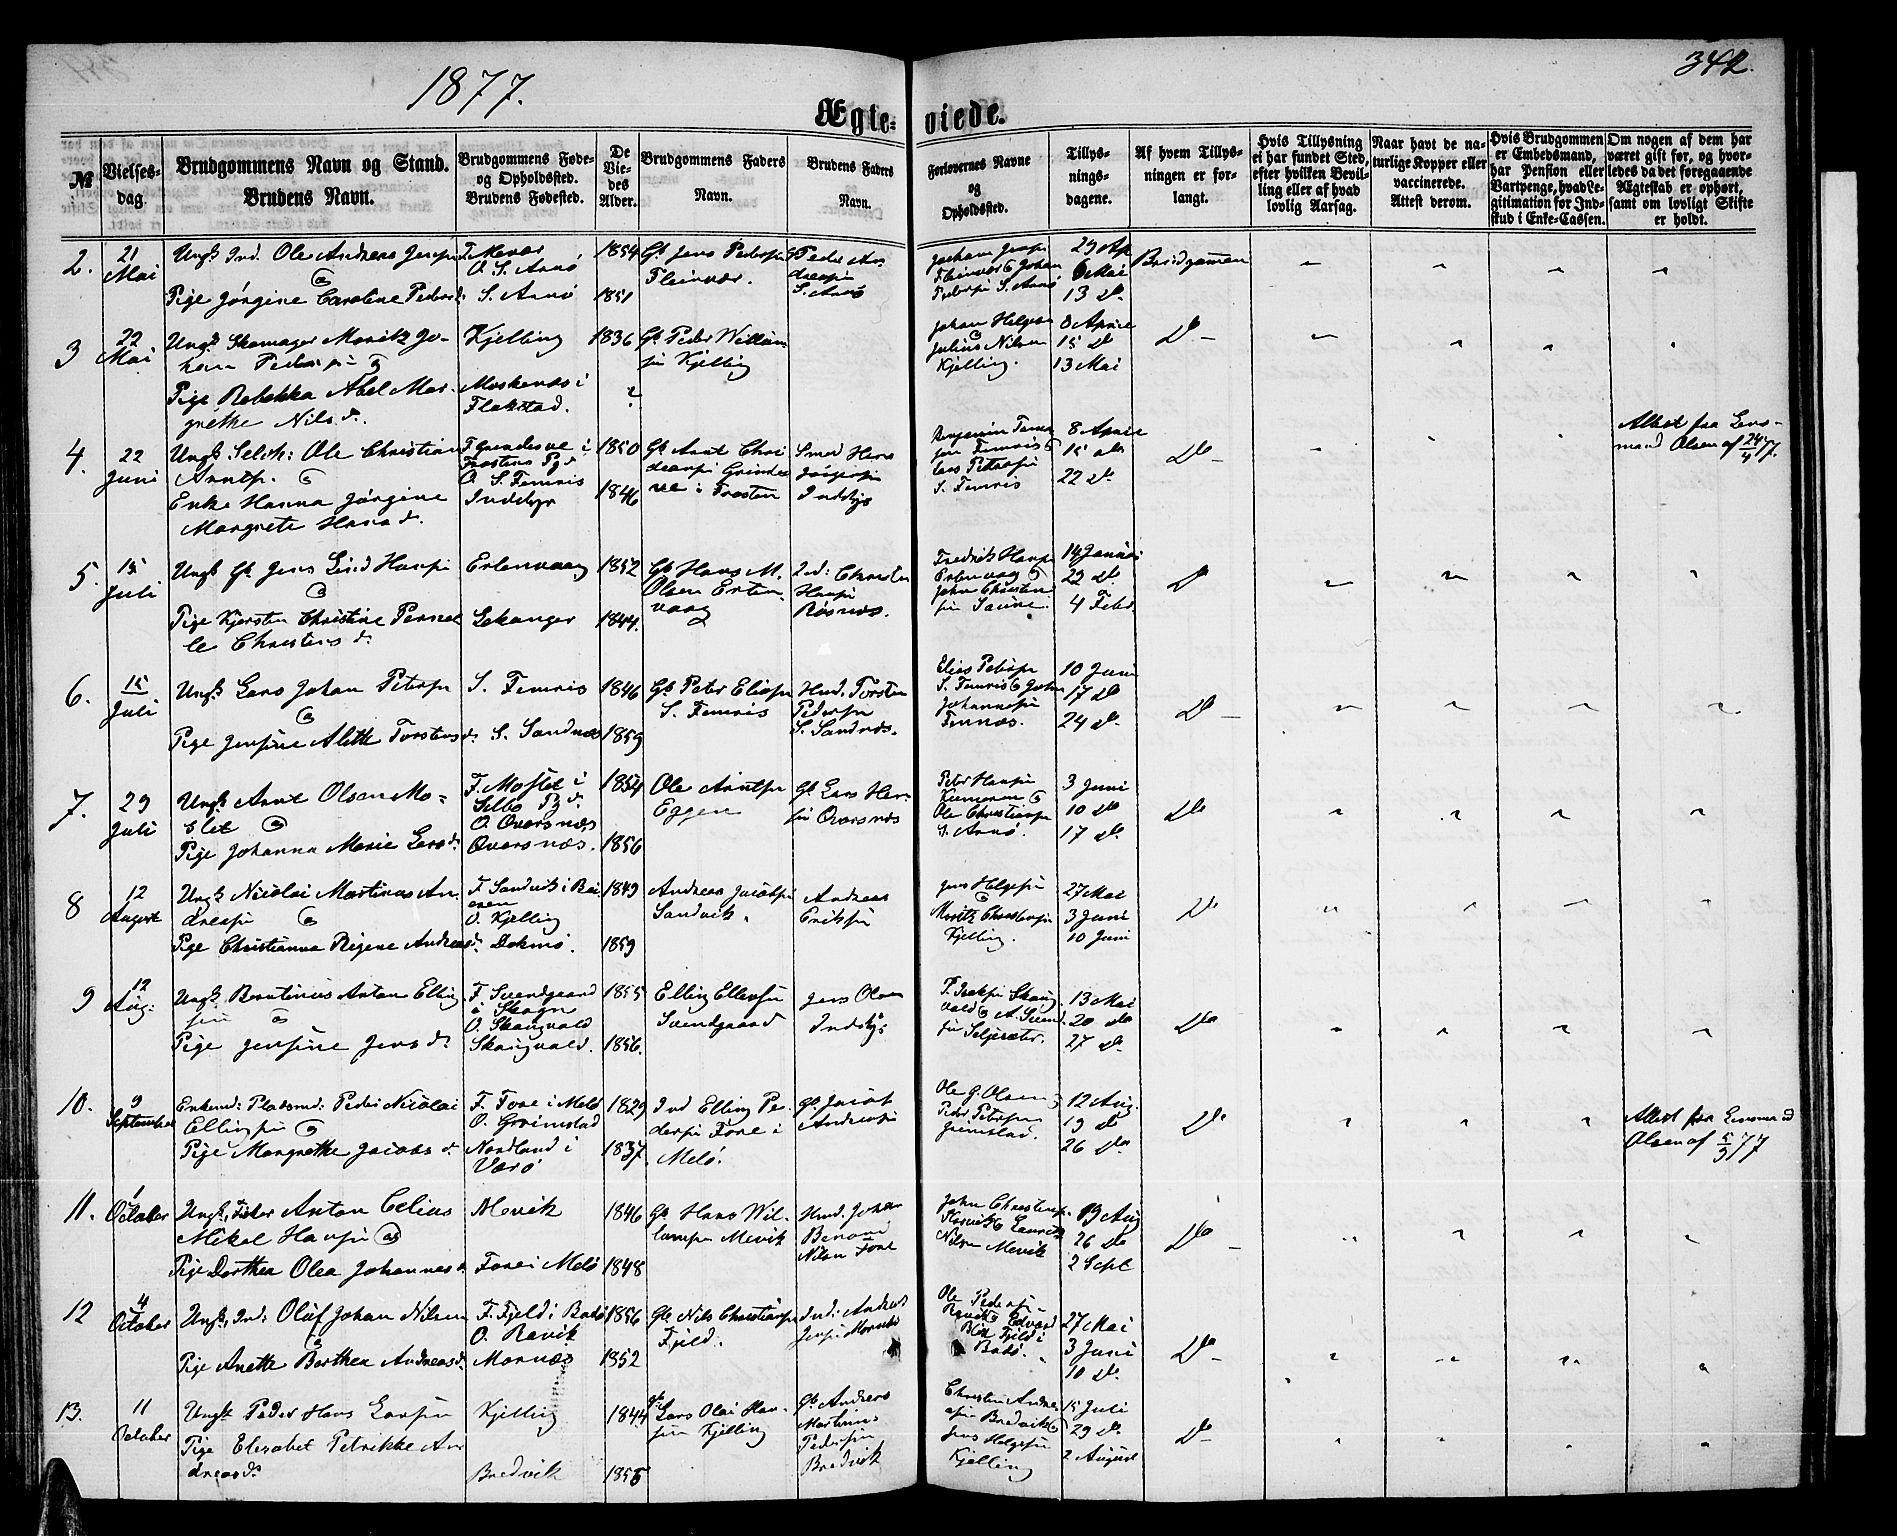 1877.
342.
Ægte-
viede.
№
Vielses-
dag.
Brudgommens Navn og Stand.
Brudens Navn.
Brudgommens Føde-
og Opholdssted.
Brudens Fødested.
De
Vie-
des
Alder.
Brudgommens Faders
Navn.
Brudens Faders
Navn.
Forlovernes Navne
og
Opholdssted.
Tillys-
nings-
dagene.
Af hvem Tillys-
ningen er for-
langt.
Hvis Tillysning
ei har fundet Sted,
efter hvilken Bevil-
ling eller af hvad
lovlig Aarsag.
Naar havt de na-
turlige Kopper eller
vaccinerede.
Attest derom.
Hvis Brudgommen
er Embedsmand,
har Pension eller
Vartpenge, hvad Le-
gitimation for Ind-
skud i Enke-Cassen.
Om nogen af dem har
været gift før, og hvor-
ledes da det foregaaende
Ægteskab er ophørt,
samt om lovligt Skifte
er holdt.
2.
21
Mai
Ungk. Ind. Ole Andreas Jenssen
Pige Jørgine Caroline Pedersd.
O. S. Arnø
S. Arnø
1854
1851
Gb. Jens Pedersen
Fleinvær.
S. Arnø
29 Ap
6 Mai
13 do
Brudgommen
3
22
Mai
Ungk. Skomager Moritz Jo-
han Pedersen
Pige Rebekka Abel Mar-
grethe Nilsd.
Kjelling
Moskenæs i
Flakstad.
1836
?
Gb. Peder Willum-
sen Kjelling
Johan Helgesen
Julius Nilsen
Kjelling.
8 April
15 do
13 Mai
do
4.
22
Juni
Ungk. Selvst: Ole Christian
Arntsen.
Enke Hanna Jørgine
Margrete Hansd.
O. S. Femris
Inddyr
1850
1846
Gb. Arnt Chri
S. Femris
8 April
15 do
22 do
do
Attest fra Lens-
mand Olsen af 24/4 77.
5.
15
Juli
Ungk. Gb. Jens Lind Hansen
Pige Kjersten Christine Pernel
le Christensd.
Ertenvaag
Lekanger
1852
1844.
Gb. Hans M.
Olsen Erten-
vaag
Ind: Christen
Hansen
Røsnæs.
Fredrik Hansen
Ertenvaag
14 Januar
22 do
4 Febr
do
6.
15
Juli
Ungk. Lars Johan Petersen
Pige Jensine Alette Torstensd.
S. Femris
S. Sandnæs
1846
1859
Gb. Peter Eliasen
S. Femris
Husd. Torsten
Pedersen
S. Sandnæs.
Elias Petersen
S. Femris
10 Juni
17 do
24 do
do
7.
29
Juli
Ungk. Arnt Olsen Mo-
slet
Pige Johanna Marie Larsd.
F. Moslet i
Selbo Pgd.
O. Qvarsnæs
Qvarsnæs.
1854
1856
Ole Arntsen
Eggen
Gb. Lars Han-
sen Qvarsnæs
Peter Hansen
Ole Christiansen
S. Arnø.
3 Juni
10 do
17 do
do
8
12
August
Ungk. Nicolai Martinus An-
dreasen
Pige Christianna Regine Andreasd.
F. Sandvik i Bei
eren
O. Kjelling
Dokmo.
1849
1859
Andreas Jacobsen
Sandvik.
Andreas
Eriksen
Jens Helgesen
Moritz Christensen
Kjelling.
27 Mai
3 Juni
10 Juni
do
9
12
Aug:
Ungk. Berntinus Anton Elling-
sen
Pige Jensine Jensd.
F. Svendgaard
i Skogn
O. Skaugvold
Skaugvold.
1855
1856.
Elling Ellevsen
Svendgaard
Jens Olsen
Inddyr
13 Mai
20 do
27 do
do
10.
9
September
Enkemd: Pladsmd: Peder Nicolai
Ellingsen
Pige Margrethe Jacobsd.
F. Fore i Melø
O. Grimstad
Nordland i
Værø
1829
1837.
Ind Elling Pe-
dersen Fore i
Melø.
Gb. Jacob
Andreasen
Ole G. Olsen
Peder Petersen
Grimstad.
12 Aug.
19 do
26 do
do
Attest fra Lensmand
Olsen af 5/9 77
11.
1
October
Ungk. Fisker Anton Celius
Mikal Hansen
Pige Dorthea Olea Johannesd.
Mevik
Fore i Melø
1846
1848
Gb. Hans Wil-
lumsen Mevik
Husd. Johan
Benoni
Nilsen Fore
Nilsen Mevik
19 Aug
26 do
2 Sept
do
12
4
October
Ungk. Ind: Oluf Johan Nilsen
Pige Anette Berthea Andreasd.
F. Fjeld i Bodø
O. Røvik
Mornæs
1856
1852
Gb. Nils Christiansen
Fjeld.
Ind: Andreas
Jensen Mornæs
Ole Pedersen
Røvik Edvard
Fjeld i
Bodø.
27 Mai
3 Juni
10 do
do
13.
11
October
Ungk. Peder Hans Larsen
Pige Elisabet Petrikke An
dreasd.
Kjelling
Bredvik
1844
1855
Gb. Lars Olai Han-
sen Kjelling
Gb. Andreas
Martinus
Pedersen
Bredvik
Christen Andre-
asen Bredvik
Jens Helgesen
Kjelling
15 Juli
29 do
2 August
do